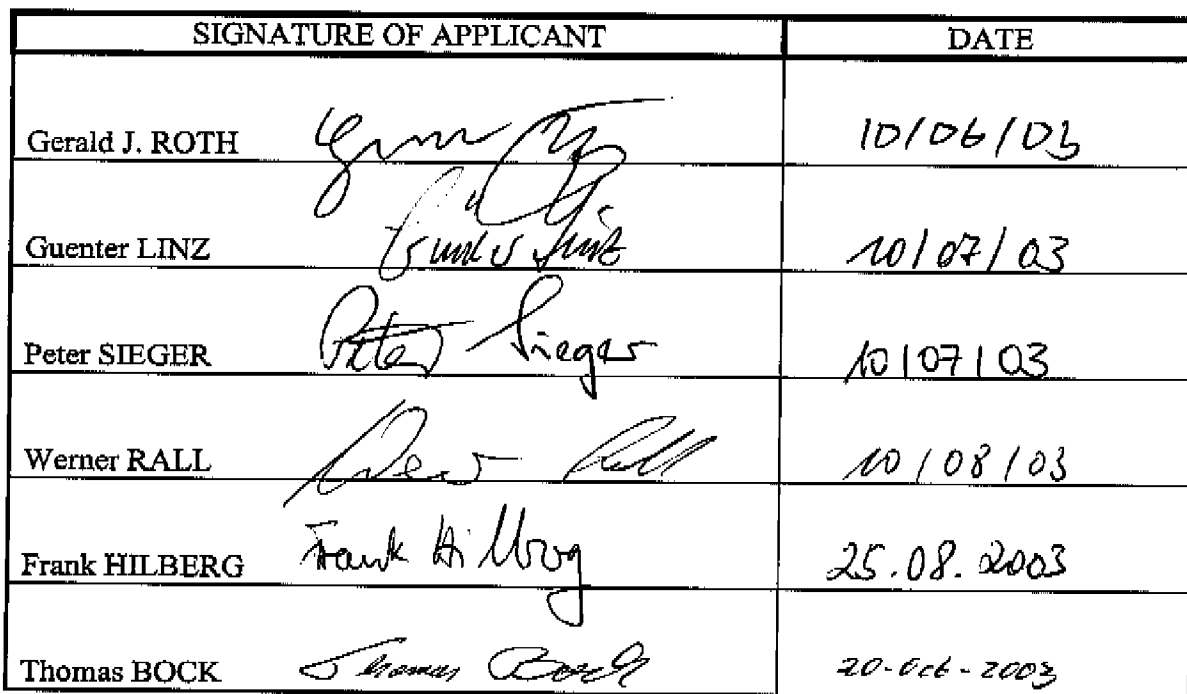 SIGNATURE OF APPLICANT DATE
Gerald J. ROTH 10/06/03
Guenter LINZ Gunter Linz 10/07/03
Peter SIEGER Peter Sieger 10/07/03
Werner RALL Rall 10/08/03
Frank HILBERG Frank Hilberg 25.08.2003
Thomas BOCK Thomas Bock 20-Oct-2003